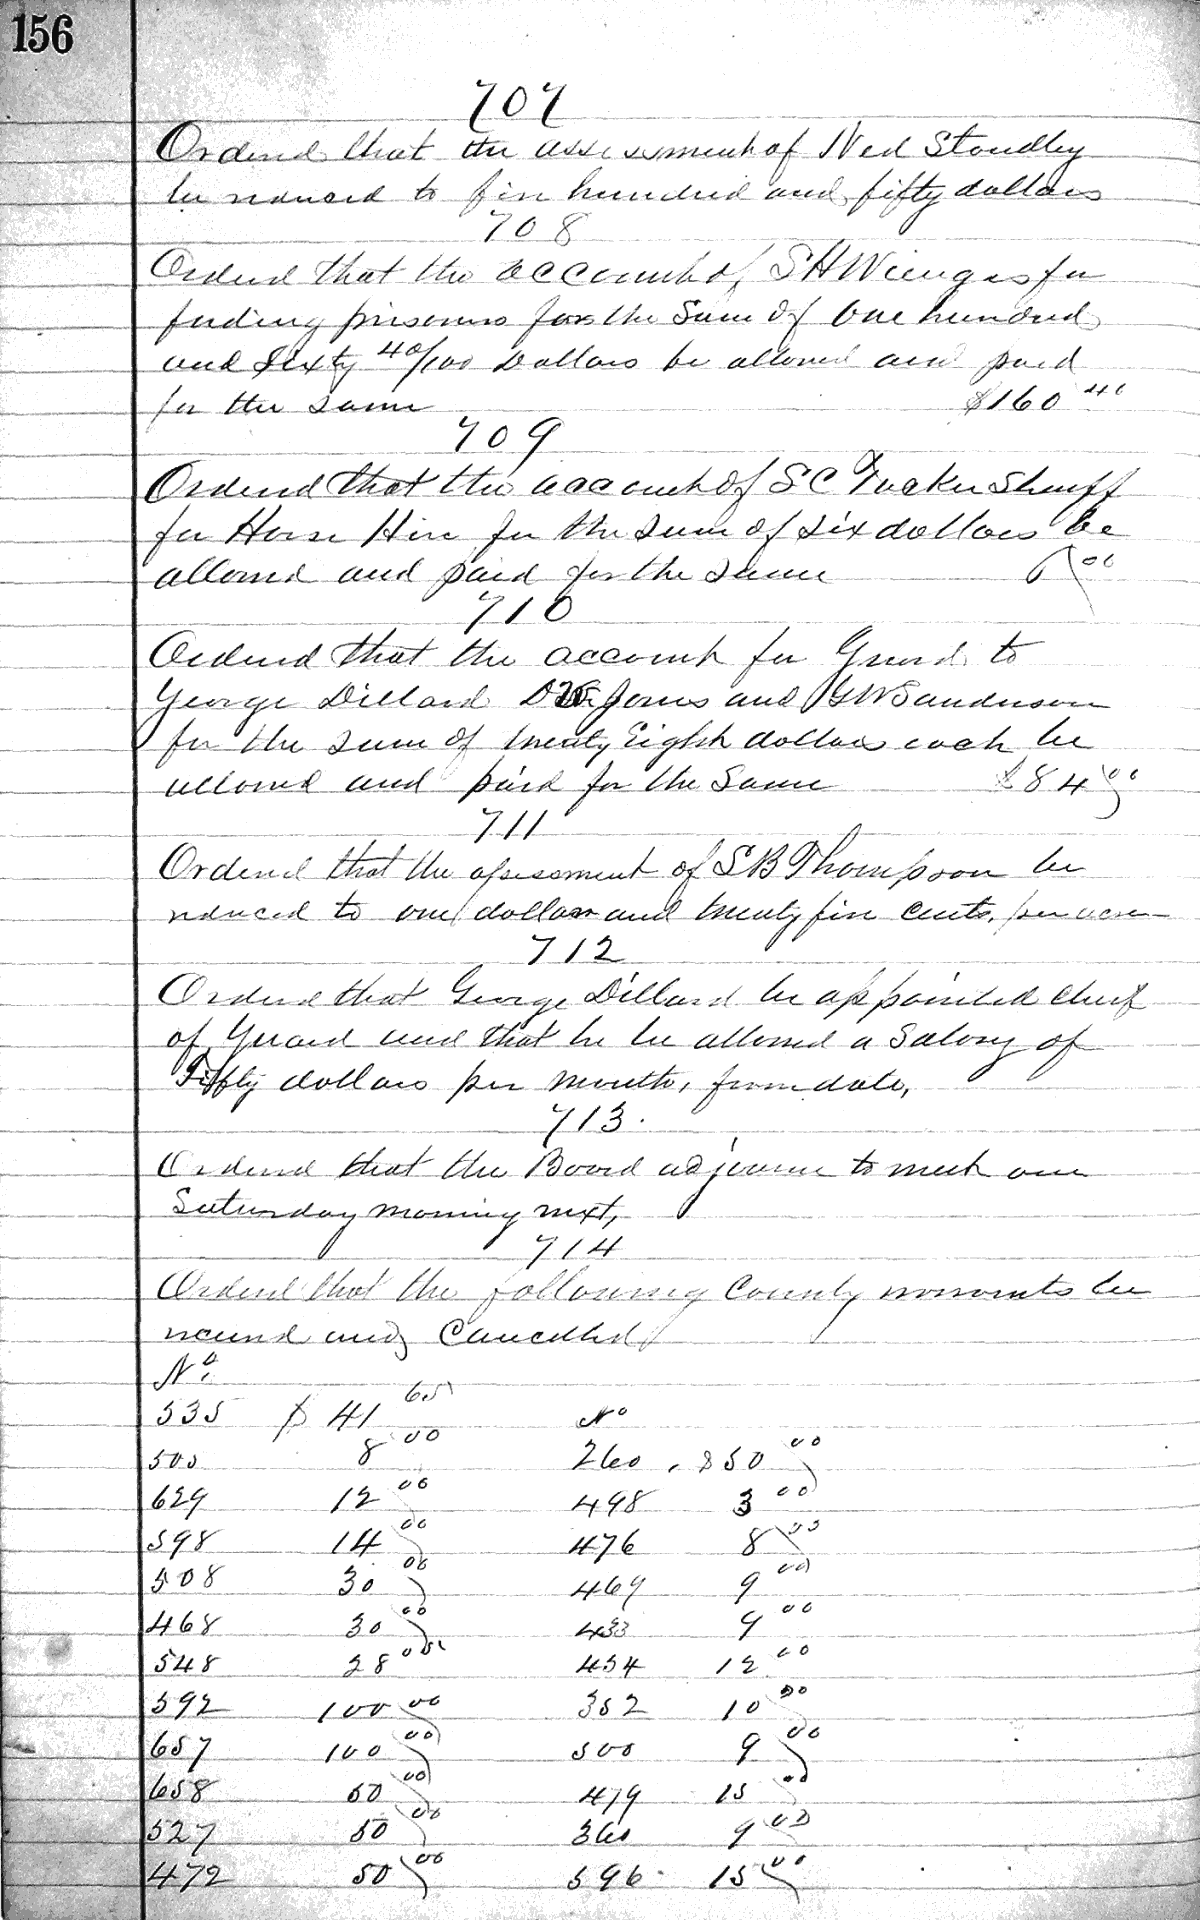 156
707
Ordered that the assessment of Ned Standley
be reduced to five hundred and fifty dollars
708
Ordered that the account of S H for
feeding prisoners for the Sum of One hundred
and Sixty 40/100 Dollars be allowed and paid
for the same $160 40
709
Ordered that the account of S C Tucker Sheriff
for Horse Hire for the sum of six dollars be
allowed and paid for the same 6 00
710
Ordered that the account for Guard to
George Dillard D W Jones and G W Sanderson
for the sum of twenty Eight dollars each be
allowed and paid for the same $84 00
711
Ordered that the assessment of S B Thompson be
reduced to one dollar and twenty five cents, per acre
712
Ordered that George Dillard be appointed Chief
of Guard and that he be allowed a Salary of
Fifty dollars per month, from date,
713.
Ordered that the Board adjourn to meet on
Saturday morning next,
714
Ordered that the following County warrants be
issued and Cancelled
No.
535 $ 41 65 No
505 8 00 260, $50 00
629 12 00 498 3 00
598 14 00 476 8 00
508 30 00 469 9 00
468 30 00 433 9 00
548 28 00 434 12 00
592 100 00 352 10 00
657 100 00 500 9 00
658 50 00 479 15 00
527 50 00 360 9 00
472 50 00 596 15 00